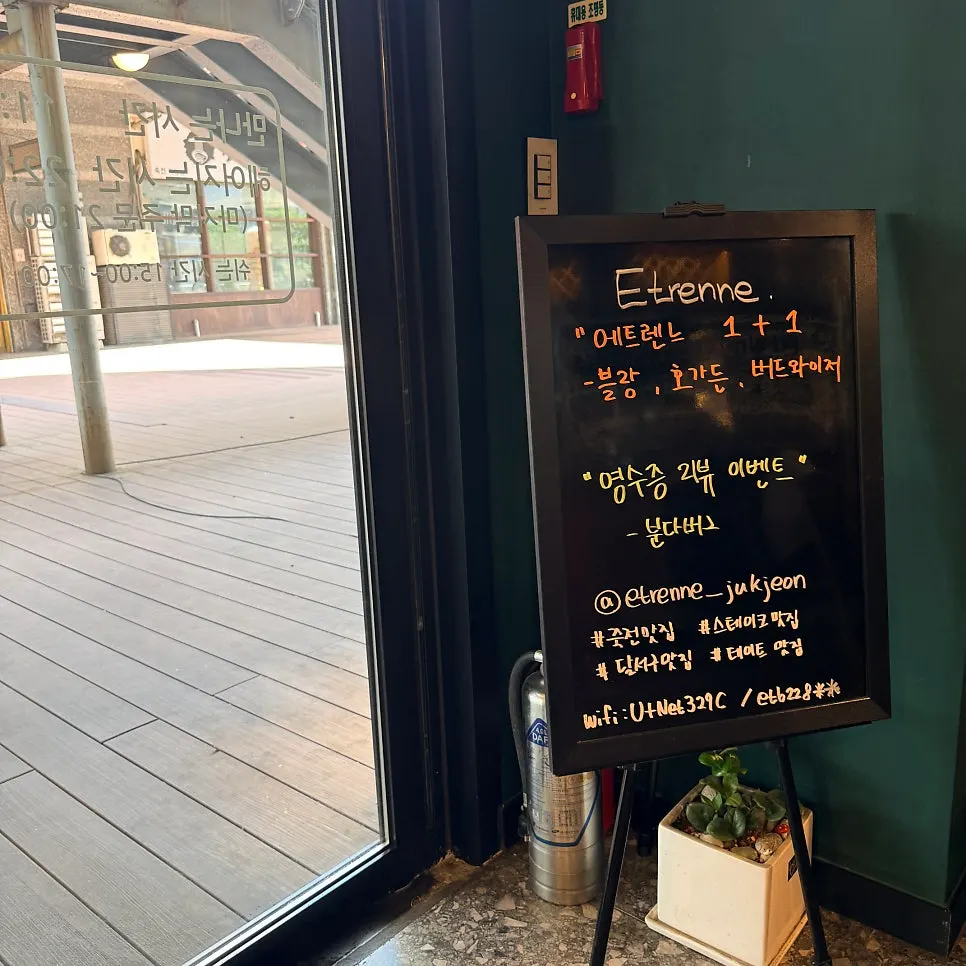 휴대용 조명등
만나는 시간 11:
헤어지는 시간 22:0
(마지막 주문 21:00)
쉬는시간 15:00~17:00
Etrenne.
"에트렌느 1+1
-블랑, 호가든, 버드와이저
"영수증 리뷰 이벤트"
- 분다버그
@etrenne_jukjeon
#죽전맛집 #스테이크맛집
#달서구맛집 #데이트 맛집
wifi: U+Net329C / etb228**